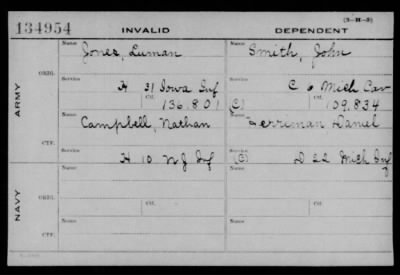 (3-H-5)
134954 INVALID DEPENDENT
Name Jones, Luman Name Smith, John
ARMY
ORIG.
Service H 31 Iowa Inf Service C 6 Mich Cav
Ctf. 136.801 Ctf. (C) 109.834
Name Campbell, Nathan Name Perriman Daniel
CTF.
Service H 10 N J Inf Service (C) D 22 Mich Inf
NAVY
Name Name
ORIG.
Service Ctf. Service Ctf.
Name Name
CTF.
Service Service